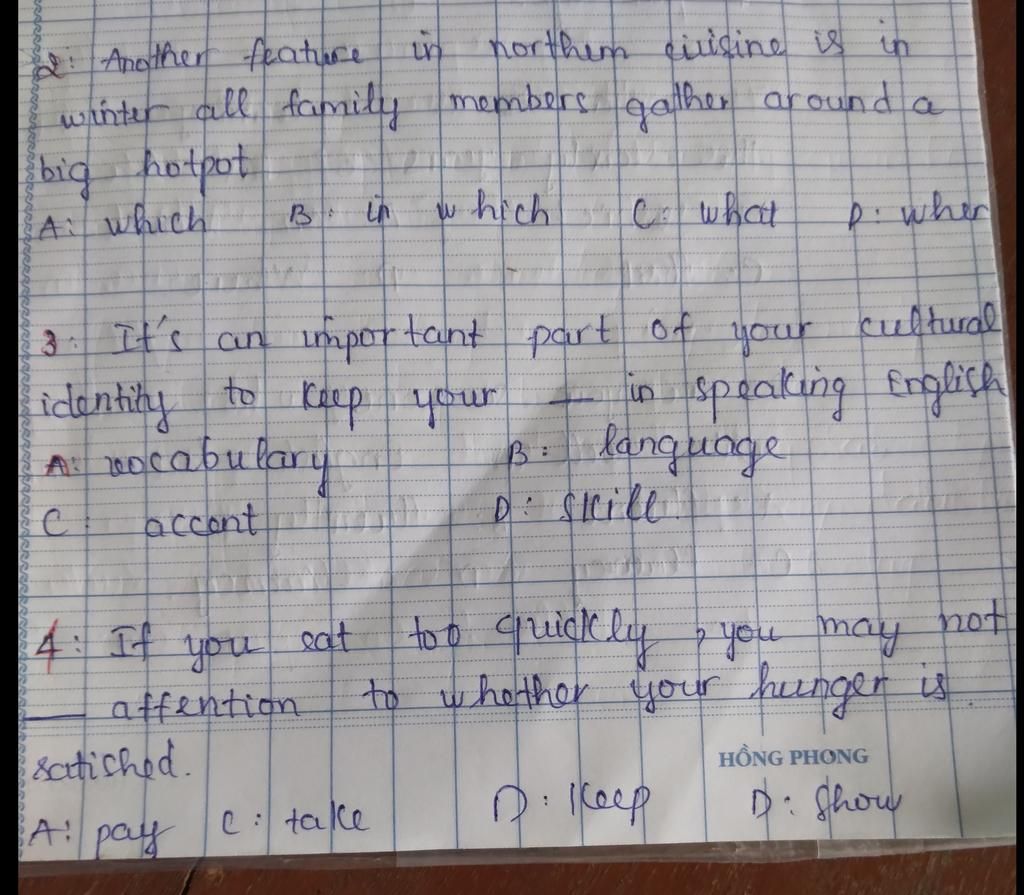 2: Another feature in northern cuisine is in
winter all family members gather around a
big hotpot
A: which B: in which C: what D: wher
3: It's an important part of your cultural
identity to keep your — in speaking English
A: vocabulary B: language
C: accent D: skill
4: If you eat too quickly, you may not
— attention to whether your hunger is
satished.
HỒNG PHONG
A: pay C: take D: keep D: show